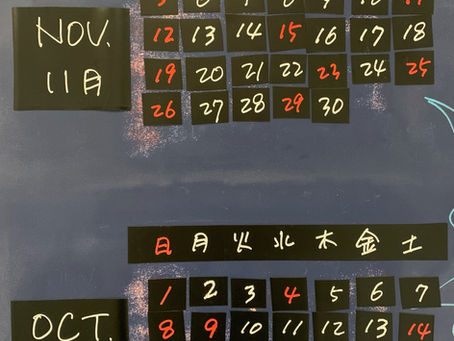 NOV.
11月
12 13 14 15 16 17 18
19 20 21 22 23 24 25
26 27 28 29 30
日 月 火 水 木 金 土
OCT.
1 2 3 4 5 6 7
8 9 10 11 12 13 14